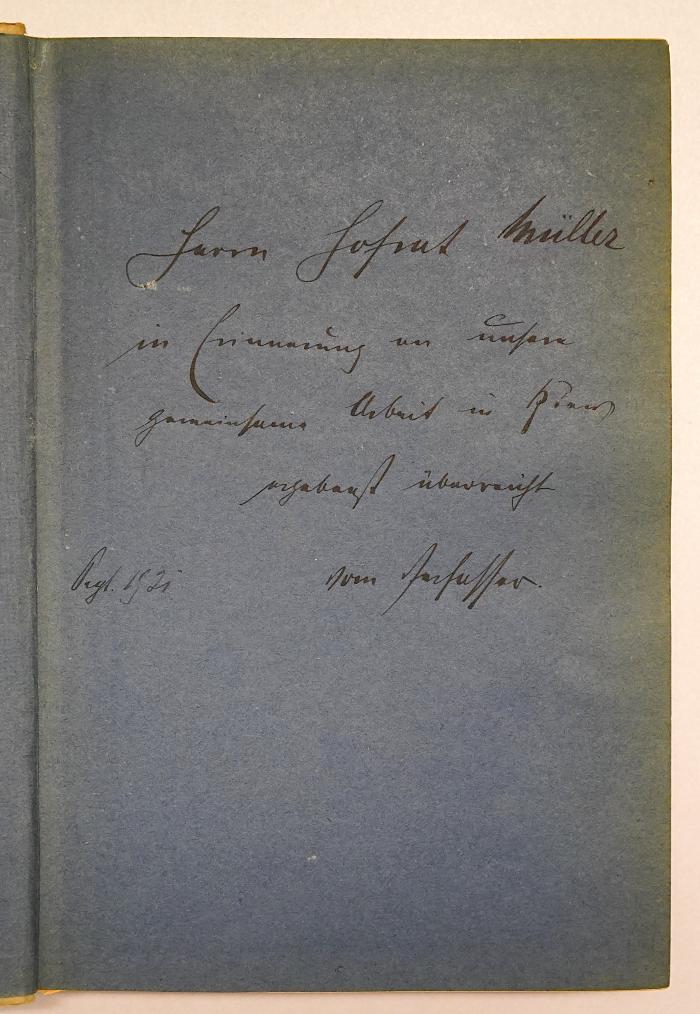 Herrn Hofrat Müller
in Erinnerung an unsere
gemeinsame Arbeit in
ergebenst überreicht
vom Verfasser.
Sept. 1921